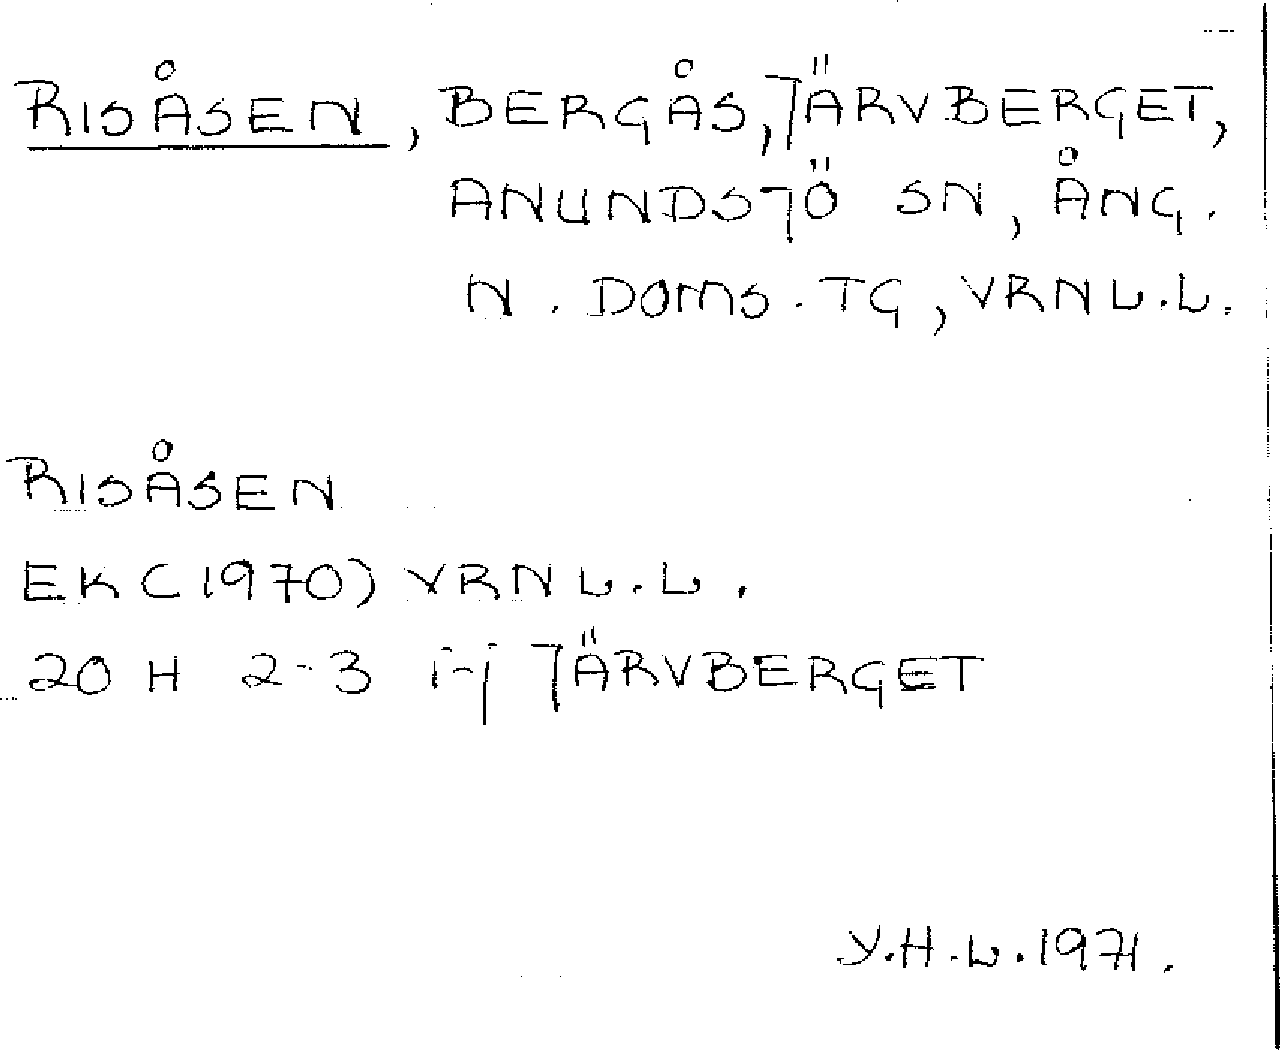 RISÅSEN, BERGÅS, JÄRVBERGET,
ANUNDSJÖ SN, ÅNG.
N. DOMS. TG, VRNL.L.
RISÅSEN
EK (1970) VRNL.L.
20 H 2-3 i-j JÄRVBERGET
Y.H.L. 1971.